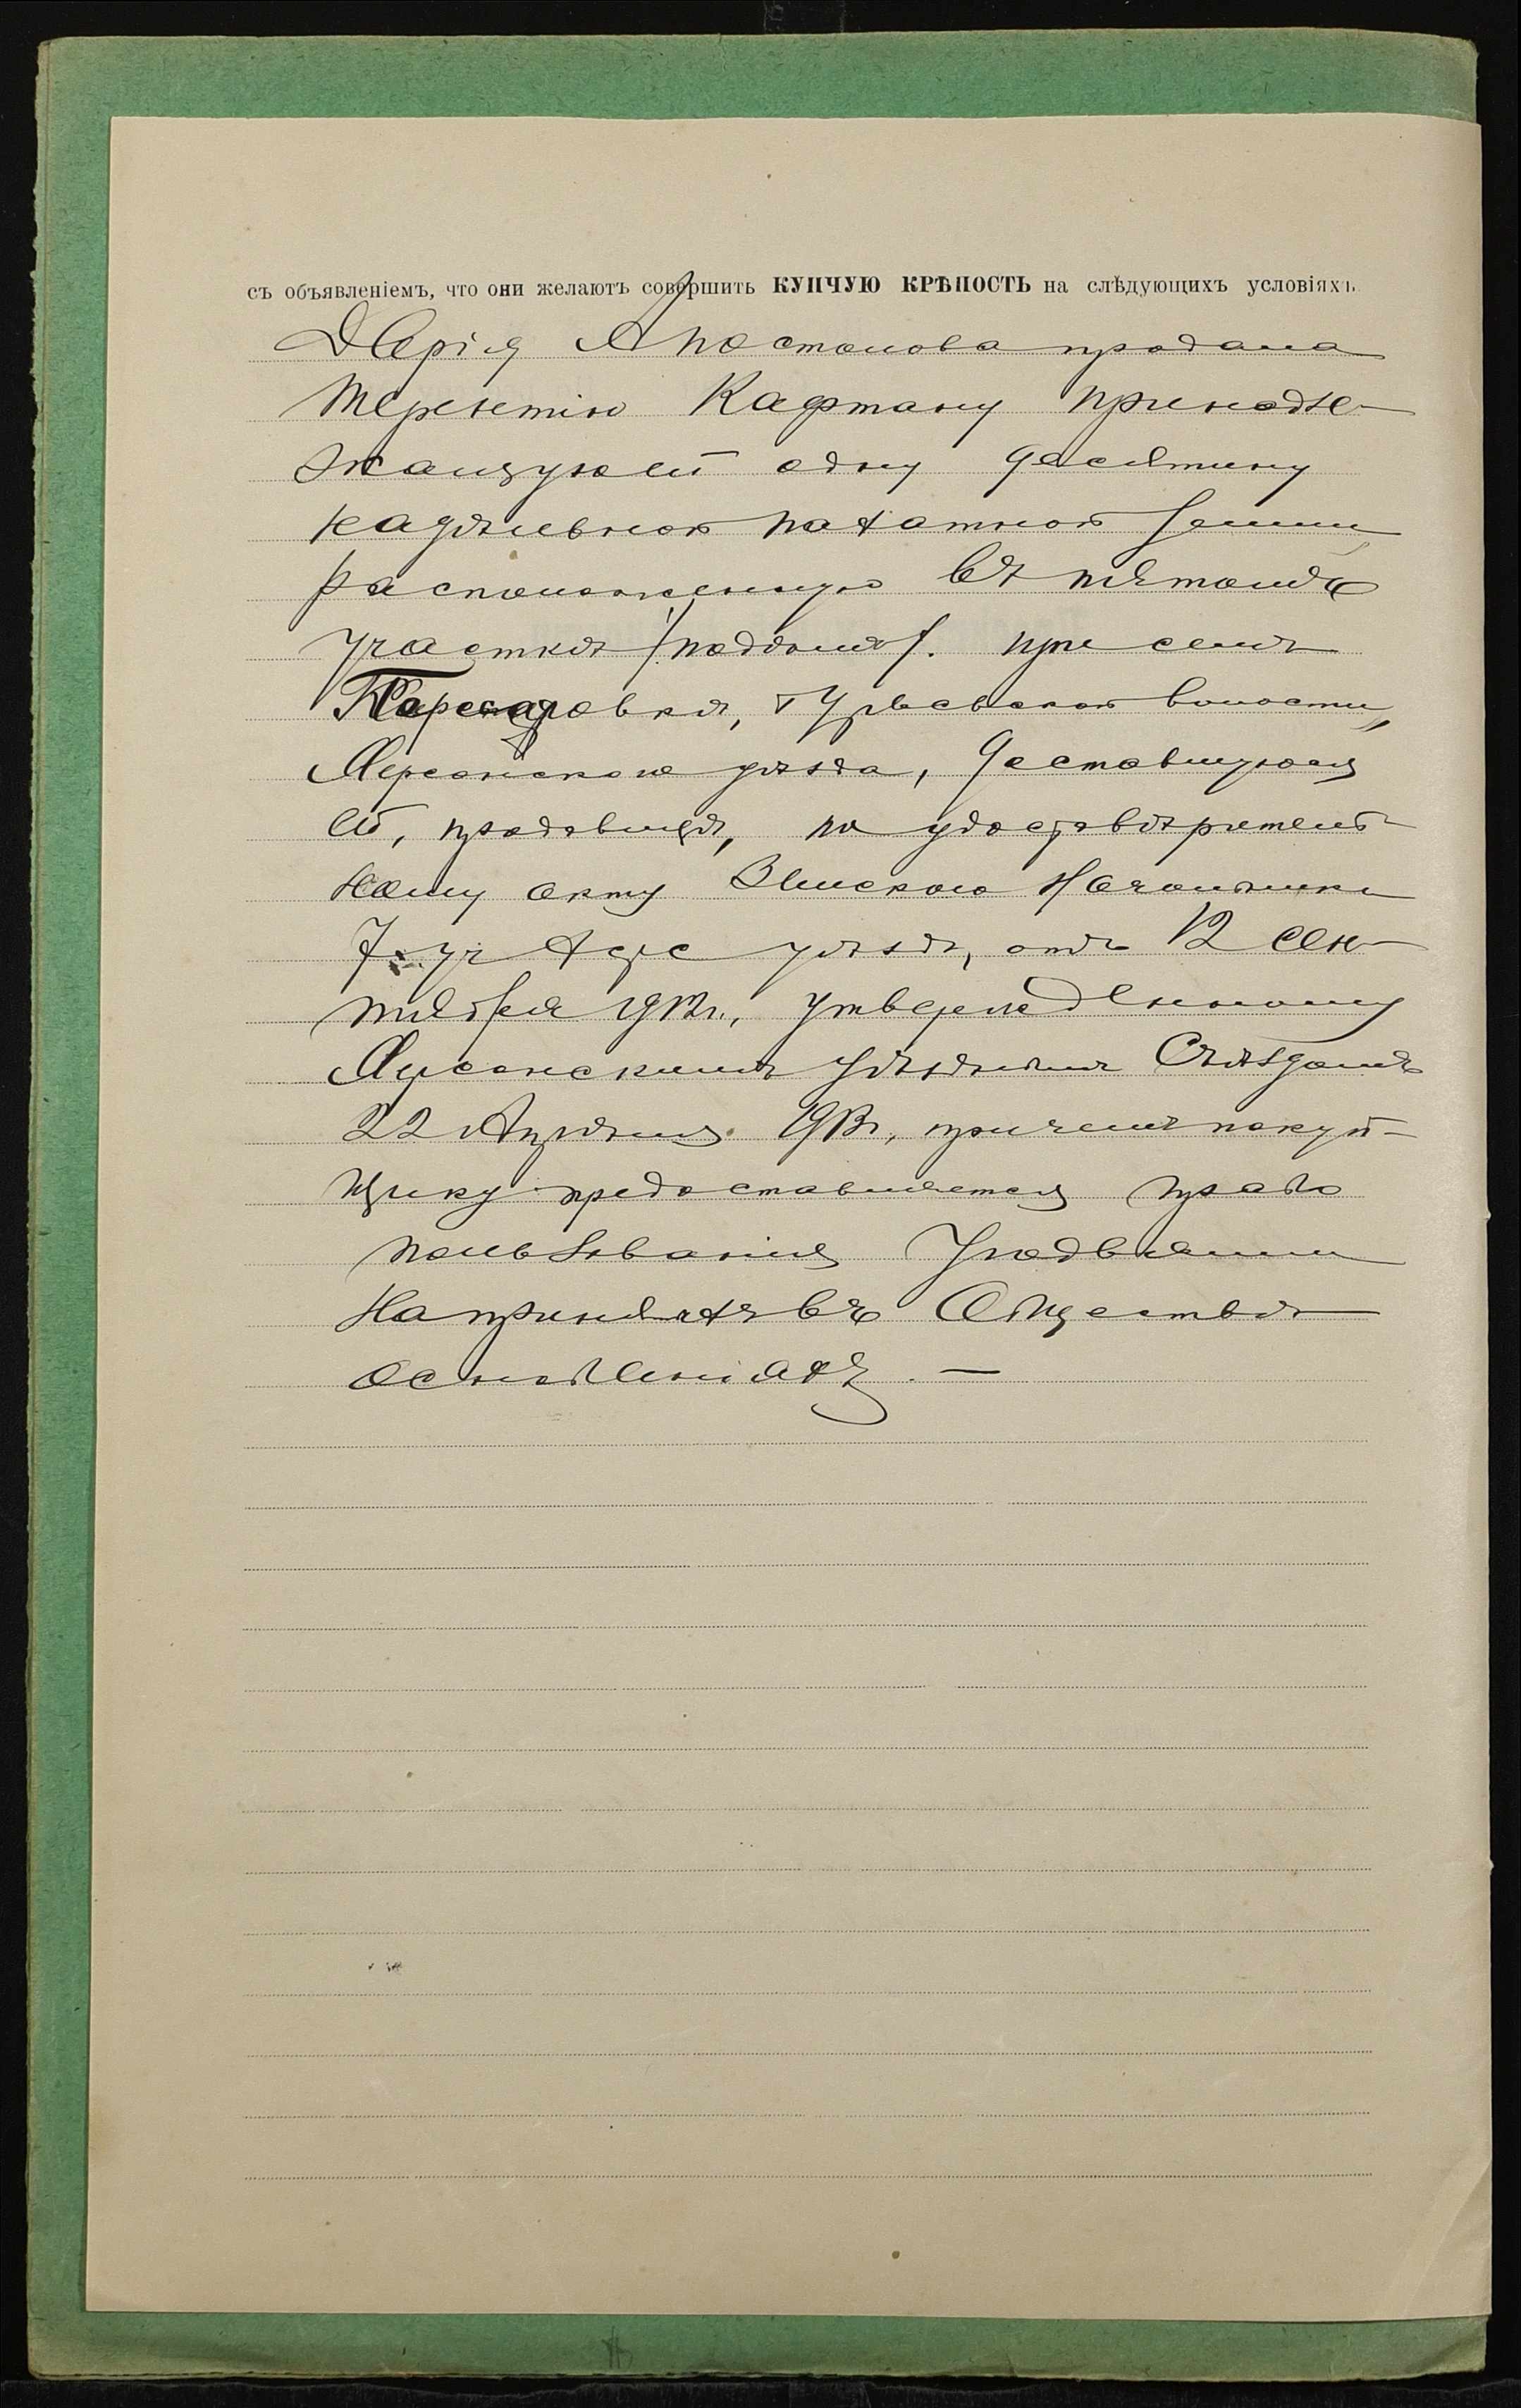 съ объявленіемъ, что они желаютъ совершить КУПЧУЮ КРѢПОСТЬ на слѣдующихъ условіяхъ
Апостолова продала
Терентію Кафтану принадле-
жащую ей одну десятину
надѣльной пахатной земли
расположенную въ пятомъ
участкѣ при селѣ
волости,
Херсонскаго уѣзда, доставшуюся
ей, продавщицѣ, по удостовѣритель-
ному акту Земскаго Начальника
7 уч Херс уѣзда, отъ 12 сен-
тября 1912 г., утвержденному
Херсонскимъ Уѣзднымъ Съѣздомъ
22 Апрѣля 1913 г., причемъ покуп-
щику предоставляется право
пользованія
на принятыхъ въ Обществѣ
основаніяхъ. —